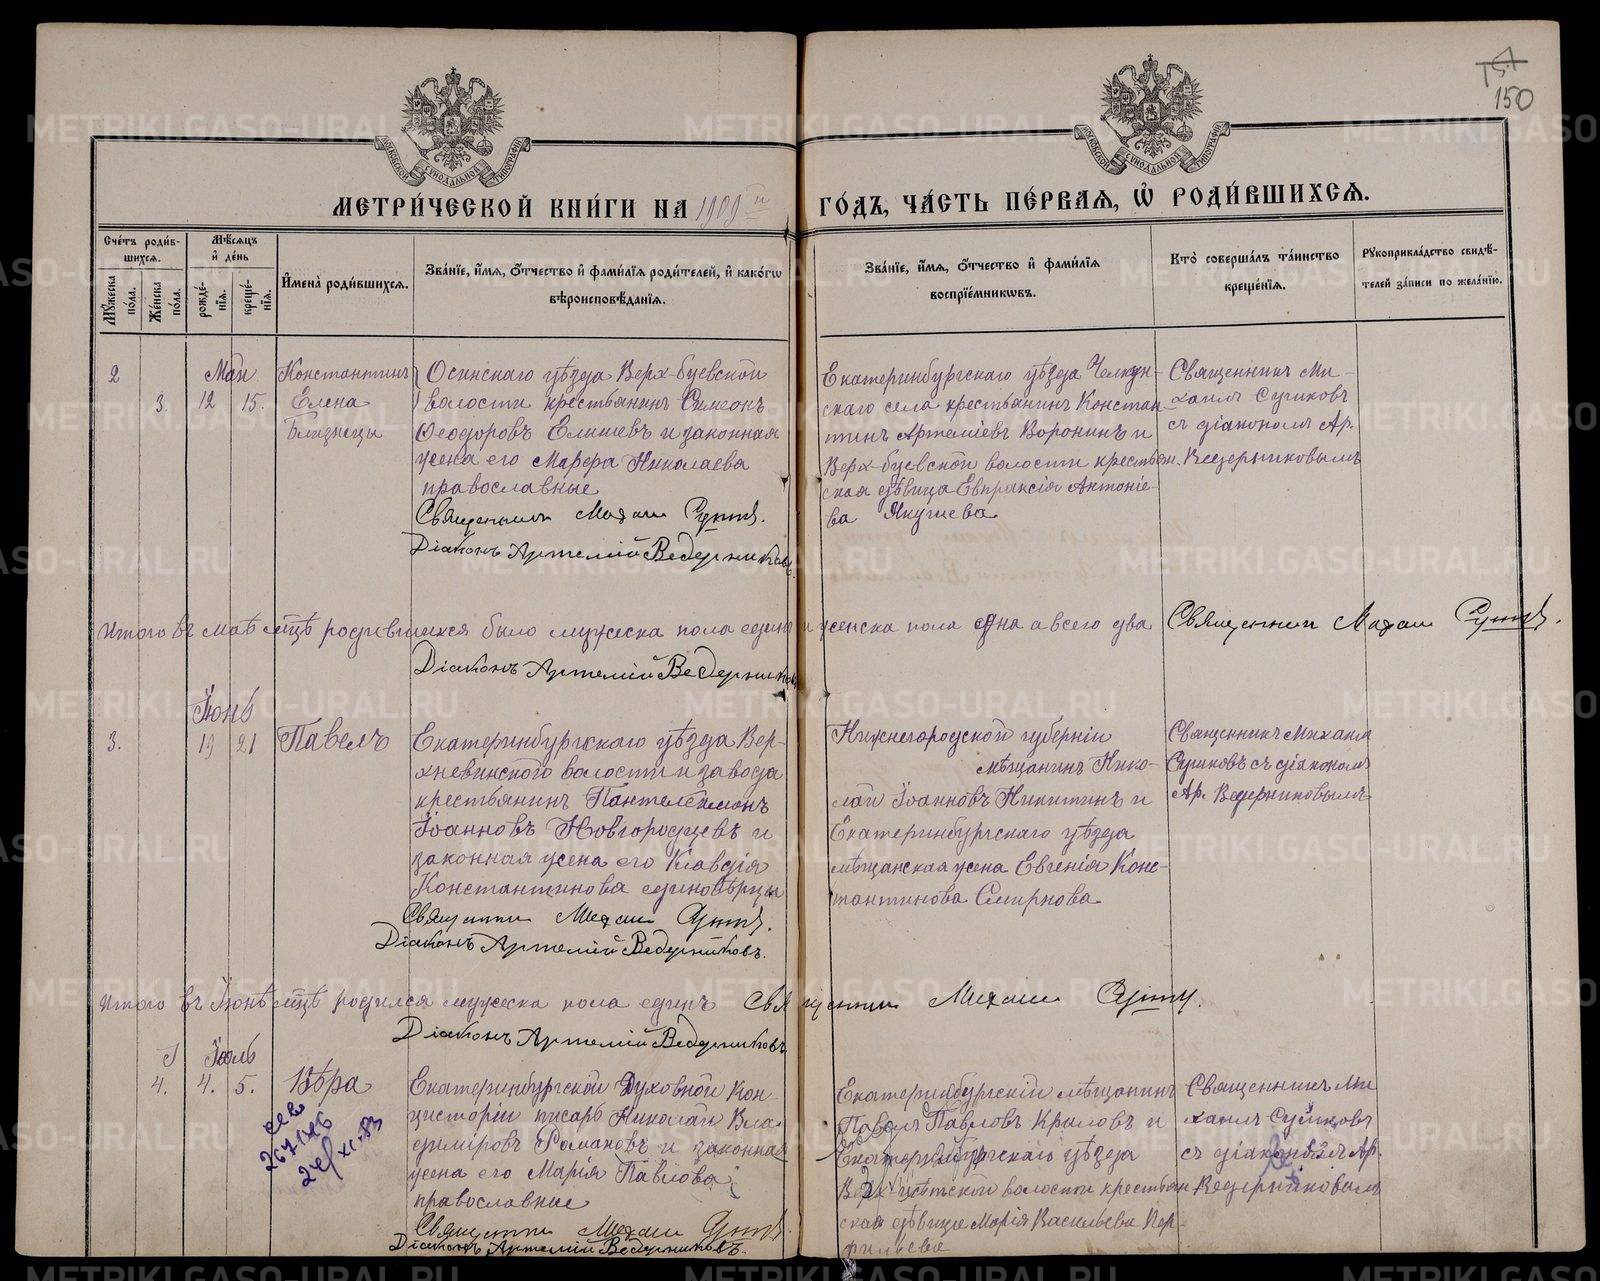 150
МОСКОВСКОЙ СѴНОДАЛЬНОЙ ТИПОГРАФІИ
МОСКОВСКОЙ СѴНОДАЛЬНОЙ ТИПОГРАФІИ
МЕТРИ́ЧЕСКОЙ КНИ́ГИ НА 1909 й
ГО́ДЪ, ЧА́СТЬ ПЕ́РВАѦ, Ѡ҆ РОДИ́ВШИХСѦ.
Сче́тъ роди́в-
шихсѧ.
Мꙋ́жеска по́ла.
Же́нска по́ла.
Мѣ́сѧцъ и҆ де́нь
рожде́-нїѧ.
креще́-нїѧ.
И҆мена̀ роди́вшихсѧ.
Зва́нїе, и҆́мѧ, ѻ҆́тчество и҆ фами́лїѧ роди́телей, и҆ како́гѡ
вѣроисповѣ́данїѧ.
Зва́нїе, и҆́мѧ, ѻ҆́тчество и҆ фами́лїѧ
воспрїе́мникѡвъ.
Кто̀ соверша́лъ та́инство
креще́нїѧ.
Рꙋкоприкла́дство свидѣ́-
телей за́писи по жела́нїю.
2
3.
Май
12 15.
Константинъ
Елена
Близнецы
Осинскаго уѣзда Верх-буевской
волости крестьянинъ Симеонъ
Ѳеодоровъ Елишевъ и законная
жена его Марѳа Николаева
православные
Священникъ Михаилъ
Діаконъ Артемій Ведерниковъ.
Екатеринбургскаго уѣзда Челкун-
скаго села крестьянинъ Констан-
тинъ Артеміевъ Воронинъ и
Верх-буевской волости крестьян.
ская дѣвица Евпраксія Антоніе-
ва Якушева
Священникъ Ми-
хаилъ Сушковъ
съ діакономъ Ар.
Ведерниковымъ
Итого въ маѣ мцѣ родившихся было мужеска пола единъ и женска пола одна а всего два
Священникъ Михаилъ
Діаконъ Артемій Ведерниковъ
Іюнь
3.
19 21
Павелъ
Екатеринбургскаго уѣзда Вер-
хневинского волости и завода
крестьянинъ Пантелеимонъ
Іоанновъ Новгородцевъ и
законная жена его Клавдія
Константинова единовѣрцы
Священникъ Михаилъ
Діаконъ Артемій Ведерниковъ.
Нижнегородской губерніи
мѣщанинъ Нико-
лай Іоанновъ Никитинъ и
Екатеринбургскаго уѣзда
мѣщанская жена Евгенія Конс-
тантинова Смирнова
Священникъ Михаилъ
Сушковъ съ діакономъ
Ар. Ведерниковымъ
Итого въ Іюнѣ мцѣ родился мужеска пола единъ Священникъ Михаилъ
Діаконъ Артемій Ведерниковъ
Іюль
4.
4. 5.
Вѣра
Екатеринбургской Духовной Кон-
систоріи писарь Николай Вла-
диміровъ Романовъ и законная
жена его Марія Павлова
православные
Священникъ Михаилъ
Діаконъ Артемій Ведерниковъ.
Екатеринбургскій мѣщанинъ
Павелъ Павловъ Крыловъ и
Екатеринбургскаго уѣзда
Верх-исетской волости крестьян
ская дѣвица Марія Васильева Пер-
фильева
Священникъ Ми
хаилъ Сушковъ
съ діакономъ Ар.
Ведерниковымъ
METRIKI.GASO-URAL.RU